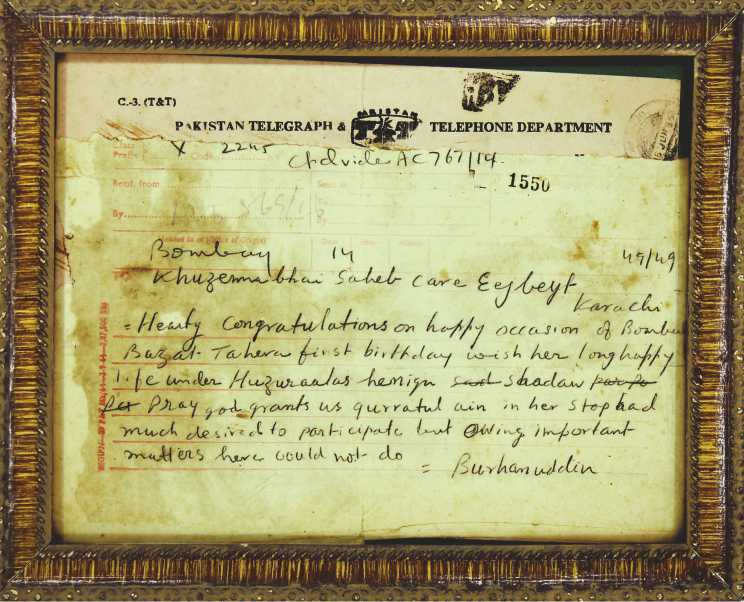 C.-3. (T&T)
PAKISTAN TELEGRAPH & PAKISTAN T&T TELEPHONE DEPARTMENT
Class
Prefix X Code 2245
AC 767/14
1550
Recd. from
By
Bombay 14 49/49
Khuzemabhai Saheb care Eezbeyt
Karachi
= Hearty congratulations on happy occasion of Bombu
Bazat Tahera first birthday wish her long happy
life under Huzuraalas benign said shadaw
Pray god grants us qurratul ain in her stop had
much desired to participate but owing important
matters here could not do
= Burhanuddin